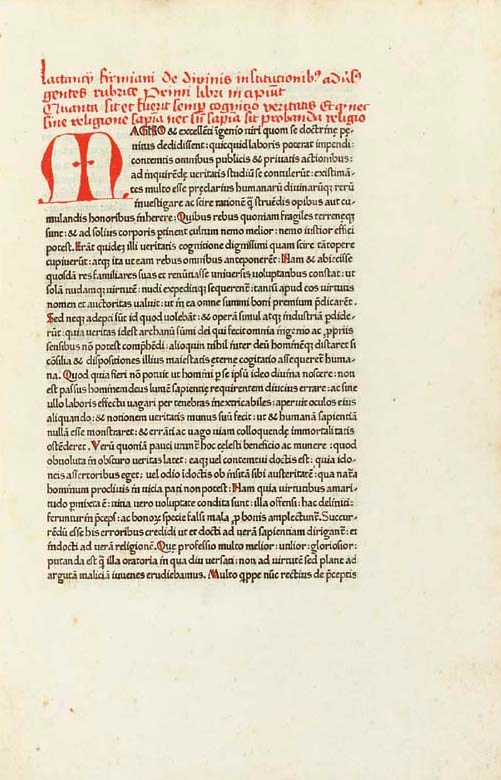 Lactantii Firmiani de divinis institutionibꝰ adúsꝰ
gentes rubrice Primi libri incipiũt
Quanta sit et fuerit semꝑ cognitio veritatis Et ꝙ nec
sine religione sapiã nec sñ sapiã sit probanda religio
MAGNO & excellẽti ĩgenio uiri quom se doctrinę pe-
nitus dedidissent: quicquid laboris poterat impendi:
contemtis omnibus publicis & priuatis actionibus:
ad inquirẽdę ueritatis studiũ se contulerũt: existimã-
tes multo esse pręclarius humanarũ diuinarũq; rerũ
inuestigare ac scire rationẽ q̃ struẽdis opibus aut cu-
mulandis honoribus inherere: Quibus rebus quoniam fragiles terreneq;
sunt: & ad solius corporis ptinent cultum nemo melior: nemo iustior effici
potest. Erãt quidẽ illi ueritatis cognitione dignissimi quam scire tãtopere
cupiuerũt: atq; ita ut eam rebus omnibus anteponerẽt: Nam & abiecisse
quosdã res familiares suas et renũtiasse uniuersis uoluptatibus constat: ut
solã nudamq; uirtutẽ: nudi expeditiq; sequerenť: tantũ apud eos uirtutis
nomen et auctoritas ualuit: ut in ea omne summi boni premium p̃dicarẽt.
Sed neq; adepti sũt id quod uolebãt: & operã simul atq; industriã pdide-
rũt: quia ueritas idest archanũ sumi dei qui fecit omnia ĩgenio ac ꝓpriis
sensibus nõ potest comp̃hẽdi: alioquin nihil ĩnter deũ hominẽq; distaret si
cõsilia & dispositiones illius maiestatis eternę cogitatio assequereť huma-
na. Quod quia fieri nõ potuit ut homini p se ipsũ ideo diuina noscere: non
est passus hominem deus lumẽ sapientię requirentem diucius errare: ac sine
ullo laboris effectu uagari per tenebras inextricabiles: aperuit oculos eius
aliquando: & notionem ueritatis munus suũ fecit: ut & humanã sapientiã
nullã esse monstraret: & errãti ac uago uiam colloquendę immortalitatis
ostẽderet. Verũ quoniã pauci utunť hoc celesti beneficio ac munere: quod
obuoluta ĩn obscuro ueritas latet: eaq; uel contemtui doctis est: quia ido-
neis assertoribus eget: uel odio ĩdoctis ob ĩnsitã sibi austeritatẽ: quã naťa
hominum procliuis in uicia pati non potest: Nam quia uirtutibus amari-
tudo pmixta ẽ: uitia uero uoluptate condita sunt: illa offensi: hac deliniti:
feruntur in p̃ceps: ac bonoꝝ specie falsi mala ꝓ bonis amplectunť. Succur-
rẽdũ esse his erroribus credidi ut et docti ad uerã sapientiam diriganť: et
ĩndocti ad uerã religionẽ. Que professio multo melior: utilior: gloriosior:
putanda est q̃ illa oratoria in qua diu uersati: non ad uirtutẽ sed plane ad
argutã maliciã iuuenes erudiebamus. Multo q̃ppe nũc rectius de p̃ceptis